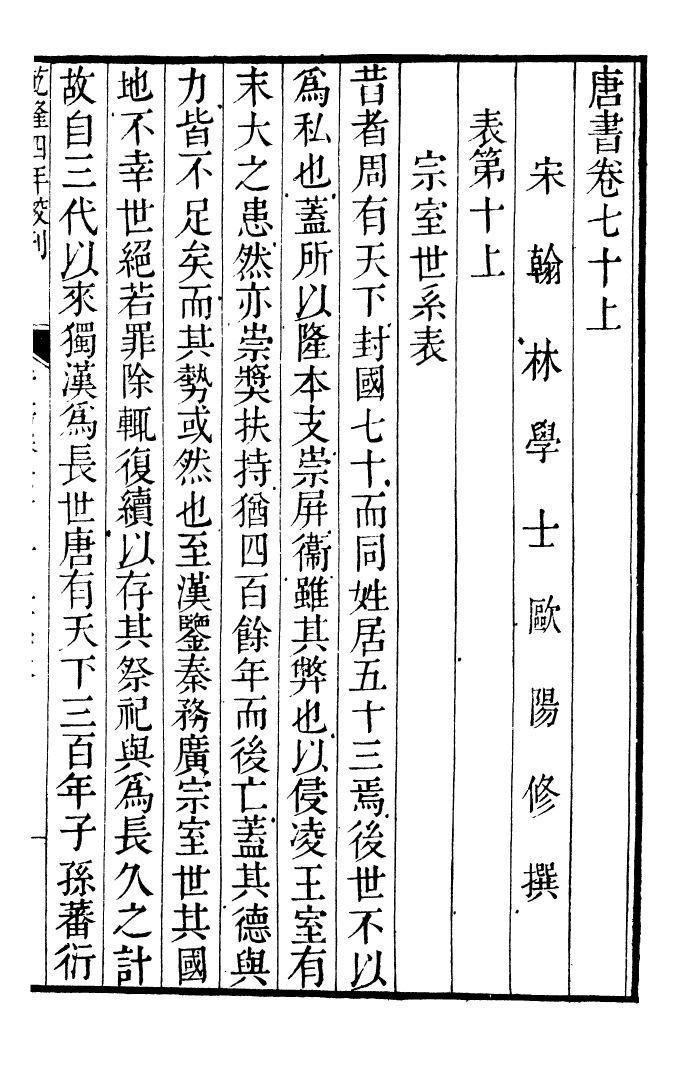 唐書卷七十上
宋翰林學士歐陽修撰
表第十上
宗室世系表
昔者周有天下封國七十而同姓居五十三焉後世不以
爲私也蓋所以隆本支崇屏衞雖其弊也以侵凌王室有
末大之患然亦崇奬扶持猶四百餘年而後亡蓋其德與
力皆不足矣而其勢或然也至漢鑒秦務廣宗室世其國
地不幸世絕若罪除輒復續以存其祭祀與爲長久之計
故自三代以來獨漢爲長世唐有天下三百年子孫蕃衍
乾隆四年校刊